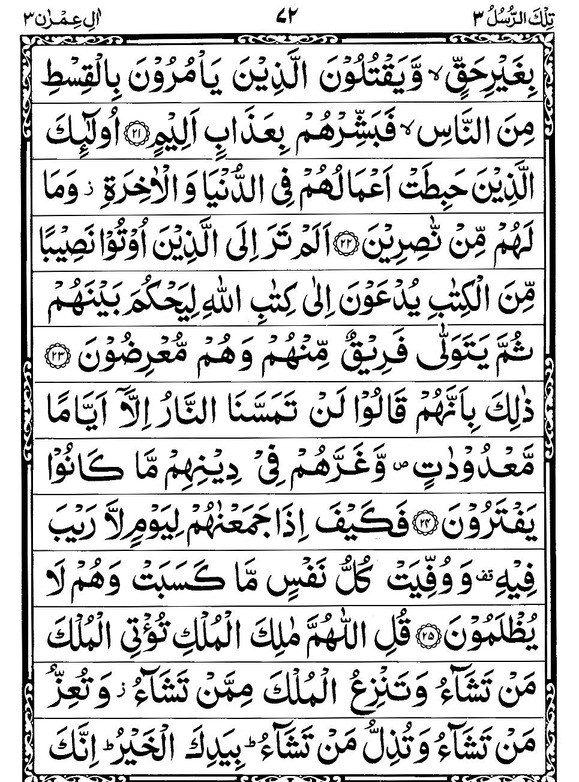 تِلْكَ الرُّسُلُ ٣ ٧٢ اٰلِ عِمْرٰن ٣
بِغَيْرِ حَقٍّ ۙ وَّيَقْتُلُوْنَ الَّذِيْنَ يَاْمُرُوْنَ بِالْقِسْطِ
مِنَ النَّاسِ ۙ فَبَشِّرْهُمْ بِعَذَابٍ اَلِيْمٍ ﴿۲۱﴾ اُولٰٓئِكَ
الَّذِيْنَ حَبِطَتْ اَعْمَالُهُمْ فِى الدُّنْيَا وَالْاٰخِرَةِ ز وَمَا
لَهُمْ مِّنْ نّٰصِرِيْنَ ﴿۲۲﴾ اَلَمْ تَرَ اِلَى الَّذِيْنَ اُوْتُوْا نَصِيْبًا
مِّنَ الْكِتٰبِ يُدْعَوْنَ اِلٰى كِتٰبِ اللّٰهِ لِيَحْكُمَ بَيْنَهُمْ
ثُمَّ يَتَوَلّٰى فَرِيْقٌ مِّنْهُمْ وَهُمْ مُّعْرِضُوْنَ ﴿۲۳﴾
ذٰلِكَ بِاَنَّهُمْ قَالُوْا لَنْ تَمَسَّنَا النَّارُ اِلَّآ اَيَّامًا
مَّعْدُوْدٰتٍ ص وَّغَرَّهُمْ فِىْ دِيْنِهِمْ مَّا كَانُوْا
يَفْتَرُوْنَ ﴿۲۴﴾ فَكَيْفَ اِذَا جَمَعْنٰهُمْ لِيَوْمٍ لَّا رَيْبَ
فِيْهِ قف وَوُفِّيَتْ كُلُّ نَفْسٍ مَّا كَسَبَتْ وَهُمْ لَا
يُظْلَمُوْنَ ﴿۲۵﴾ قُلِ اللّٰهُمَّ مٰلِكَ الْمُلْكِ تُؤْتِى الْمُلْكَ
مَنْ تَشَآءُ وَتَنْزِعُ الْمُلْكَ مِمَّنْ تَشَآءُ ز وَتُعِزُّ
مَنْ تَشَآءُ وَتُذِلُّ مَنْ تَشَآءُ ؕ بِيَدِكَ الْخَيْرُ ؕ اِنَّكَ